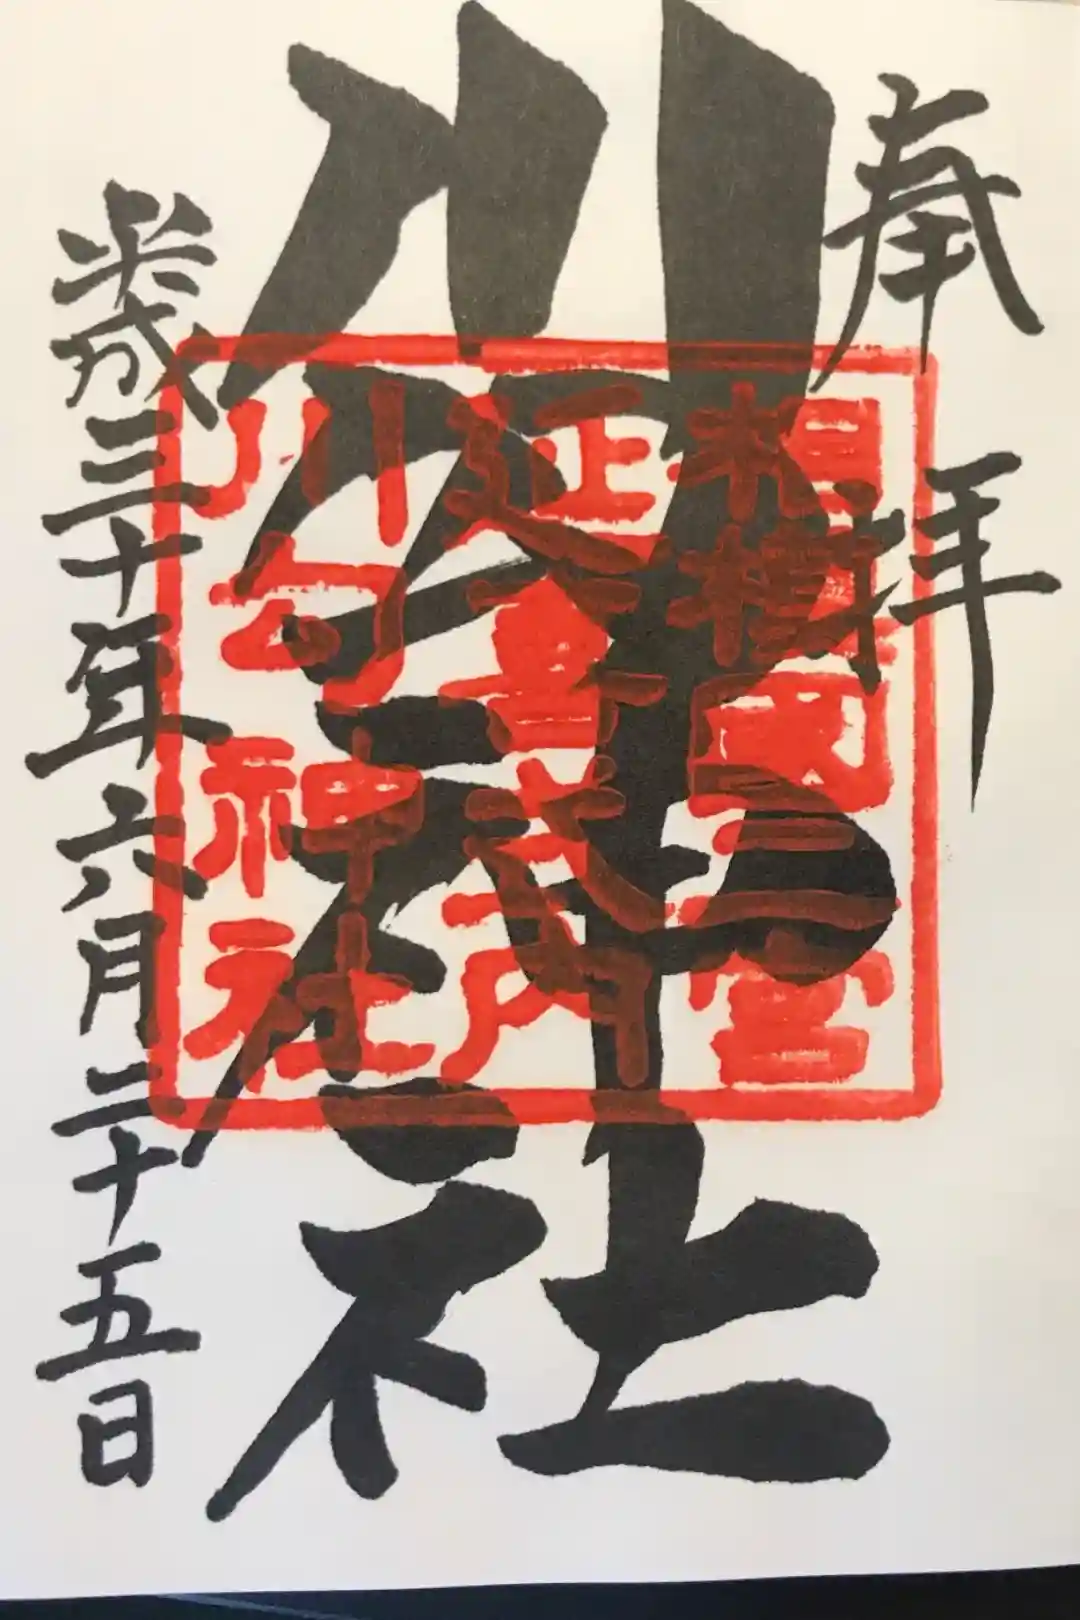 奉拝
川勾神社
相模國二宮
延喜式内
川勾神社
平成三十年六月二十五日